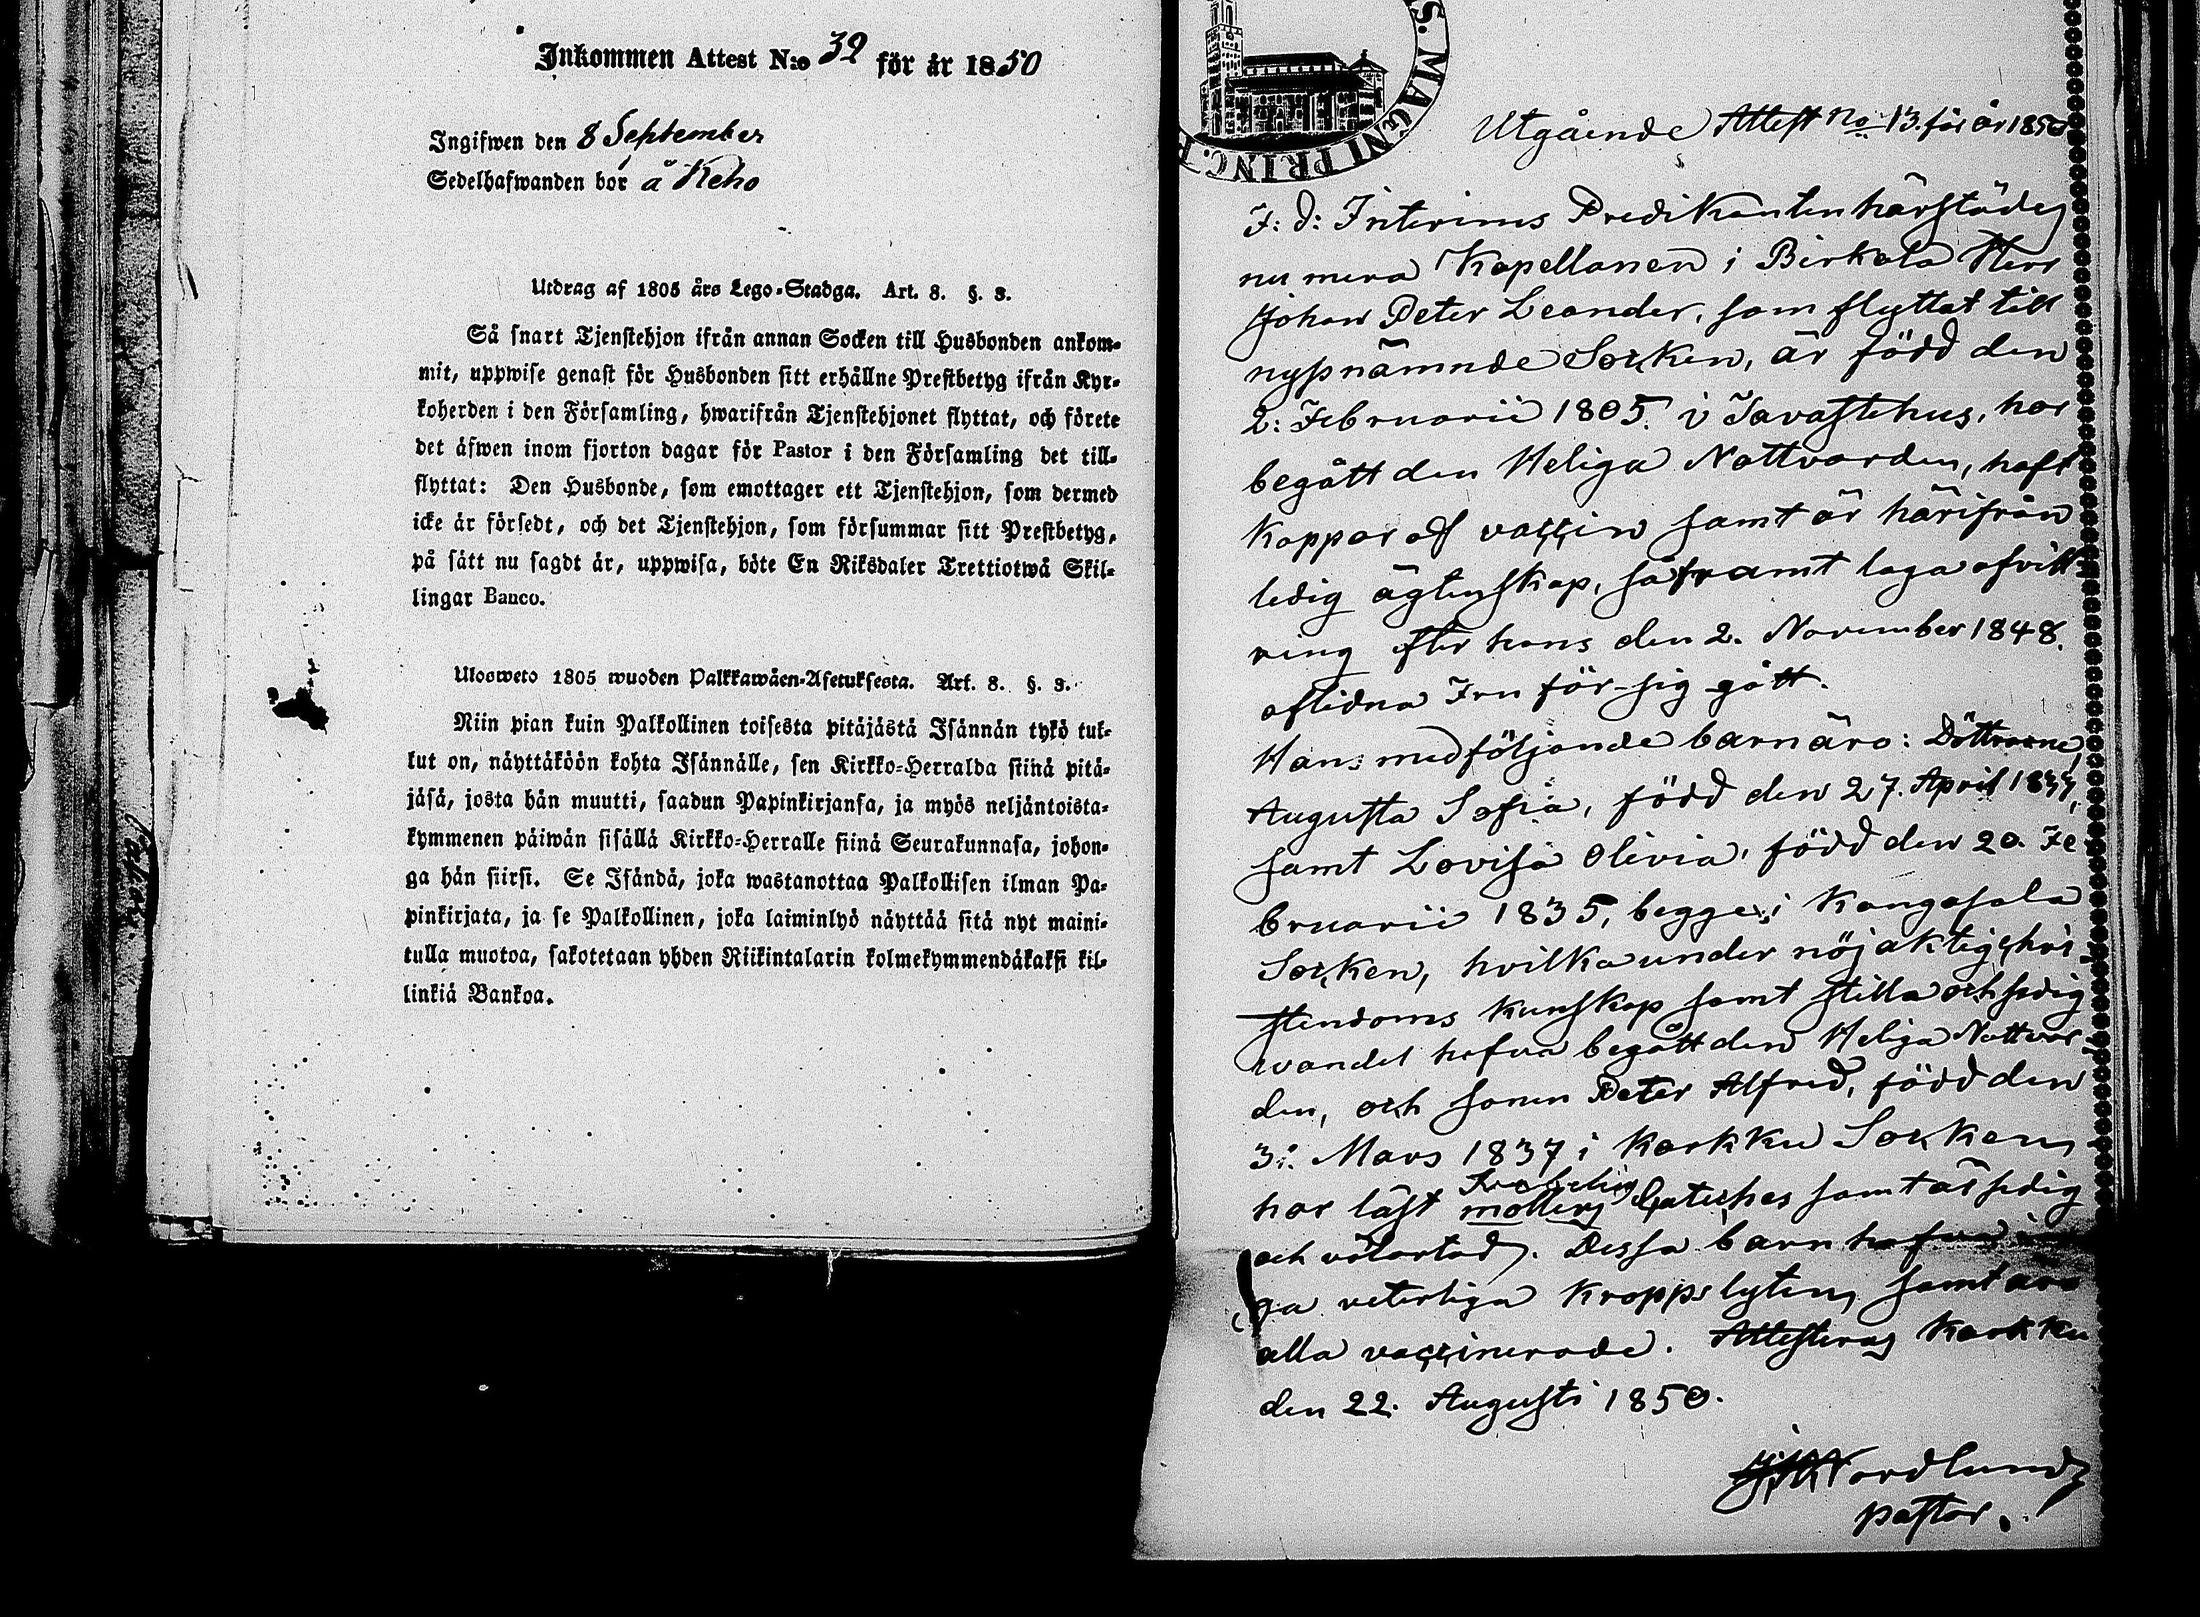 Inkommen Attest N:o 39 för år 1850
Ingifwen den 8 September
Sedelhafwanden bor å Keho
Utdrag af 1805 års Lego-Stadga. Art. 8. §. 3.
Så snart Tjenstehjon ifrån annan Socken till Husbonden ankom-
mit, uppwise genast för Husbonden sitt erhållne Prestbetyg ifrån Kyr-
koherden i den Församling, hwarifrån Tjenstehjonet flyttat, och förete
det äfwen inom fjorton dagar för Pastor i den Församling det till-
flyttat: Den Husbonde, som emottager ett Tjenstehjon, som dermed
icke är försedt, och det Tjenstehjon, som försummar sitt Prestbetyg,
på sätt nu sagdt är, uppwisa, böte En Riksdaler Trettiotwå Skil-
lingar Banco.
Ulosweto 1805 wuoden Palkkawäen-Asetuksesta. Art. 8. §. 3.
Niin pian kuin Palkollinen toisesta pitäjästä Isännän tykö tul-
lut on, näyttäköön kohta Isännälle, sen Kirkko-Herralda siinä pitä-
jäsä, josta hän muutti, saadun Papinkirjansa, ja myös neljäntoista-
kymmenen päiwän sisällä Kirkko-Herralle siinä Seurakunnasa, johon-
ga hän siirsi. Se Isändä, joka wastanottaa Palkollisen ilman Pa-
pinkirjata, ja se Palkollinen, joka laiminlyö näyttää sitä nyt maini-
tulla muotoa, sakotetaan yhden Riikintalarin kolmekymmendäkaksi kil-
linkiä Bankoa.
S. MAGNI PRINC. F
Utgående Attest No 13. för år 1850
F: d: Interims Predikanten härstädes
nu mera Kapellanen i Birkala Herr
Johan Peter Leander, som flyttat till
nyssnämnde Socken, är född den
2: Februarii 1805. i Tavastehus, har
begått den Heliga Nattvarden, haft
koppor af vaccin samt är härifrån
ledig ägtenskap, såframt laga afvitt
ring efter hans den 2. November 1848.
aflidna Fru för sig gått.
Hans medföljande barn äro: Döttrarne,
Augusta Sofia, född den 27. April 1833,
samt Lovisa Olivia, född den 20. Fe
bruarii 1835, begge i Kangasala
Socken, hvilka under nöjaktig chri
stendoms kunskap samt stilla och sedig
wandel hafva begått den Heliga Nattvar
den, och sonen Peter Alfred, född den
3: Mars 1837 i Karkku Socken,
har läst möllers Catechas samt är sedig
och välartad. Dessa barn hafva in
ga veterliga kroppslyten, samt äro
alla vaccinerade. Attesteras Karkku
den 22. Augusti 1850.
Nordlund
pastor.